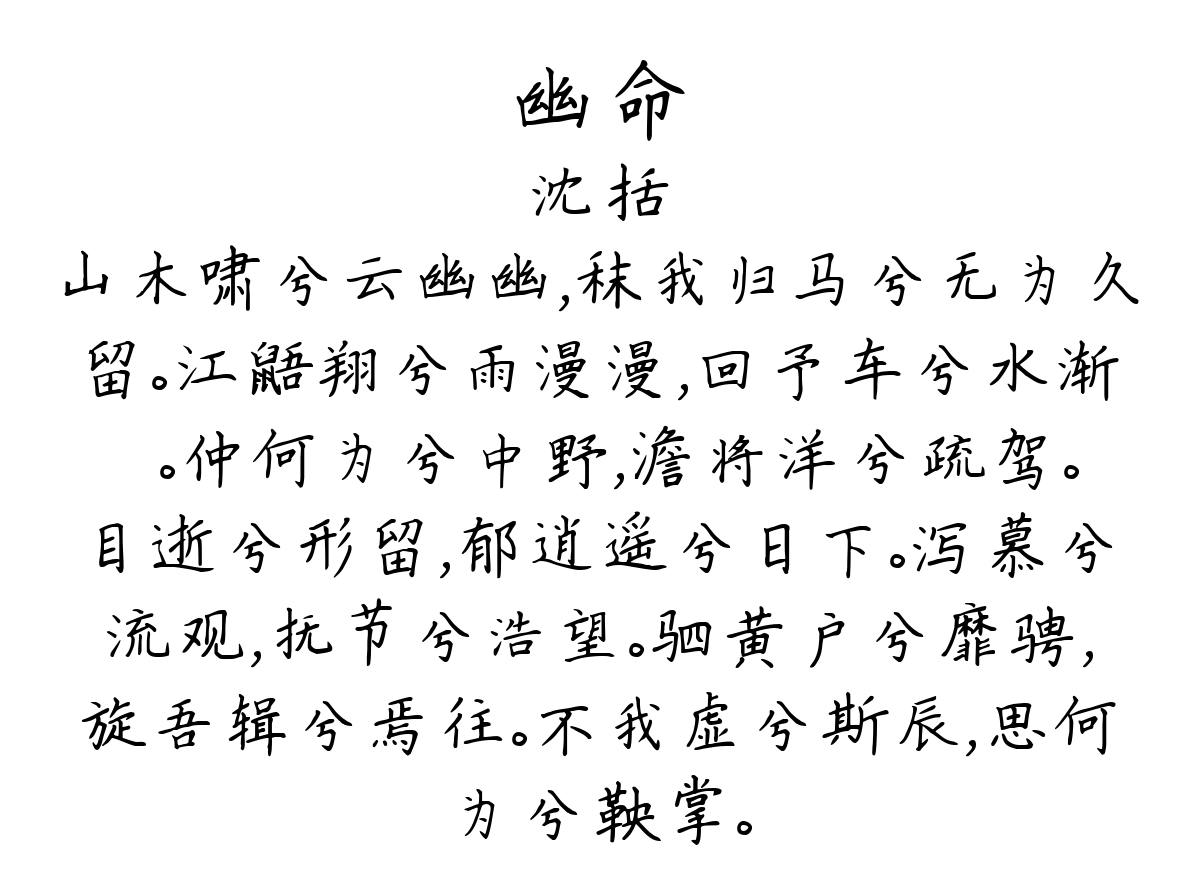 幽命
沈括
山木啸兮云幽幽,秣我归马兮无为久
留。江鼯翔兮雨漫漫,回予车兮水渐
。仲何为兮中野,澹将洋兮疏驾。
目逝兮形留,郁逍遥兮日下。泻慕兮
流观,抚节兮浩望。驷黄户兮靡骋,
旋吾辑兮焉往。不我虚兮斯辰,思何
为兮鞅掌。